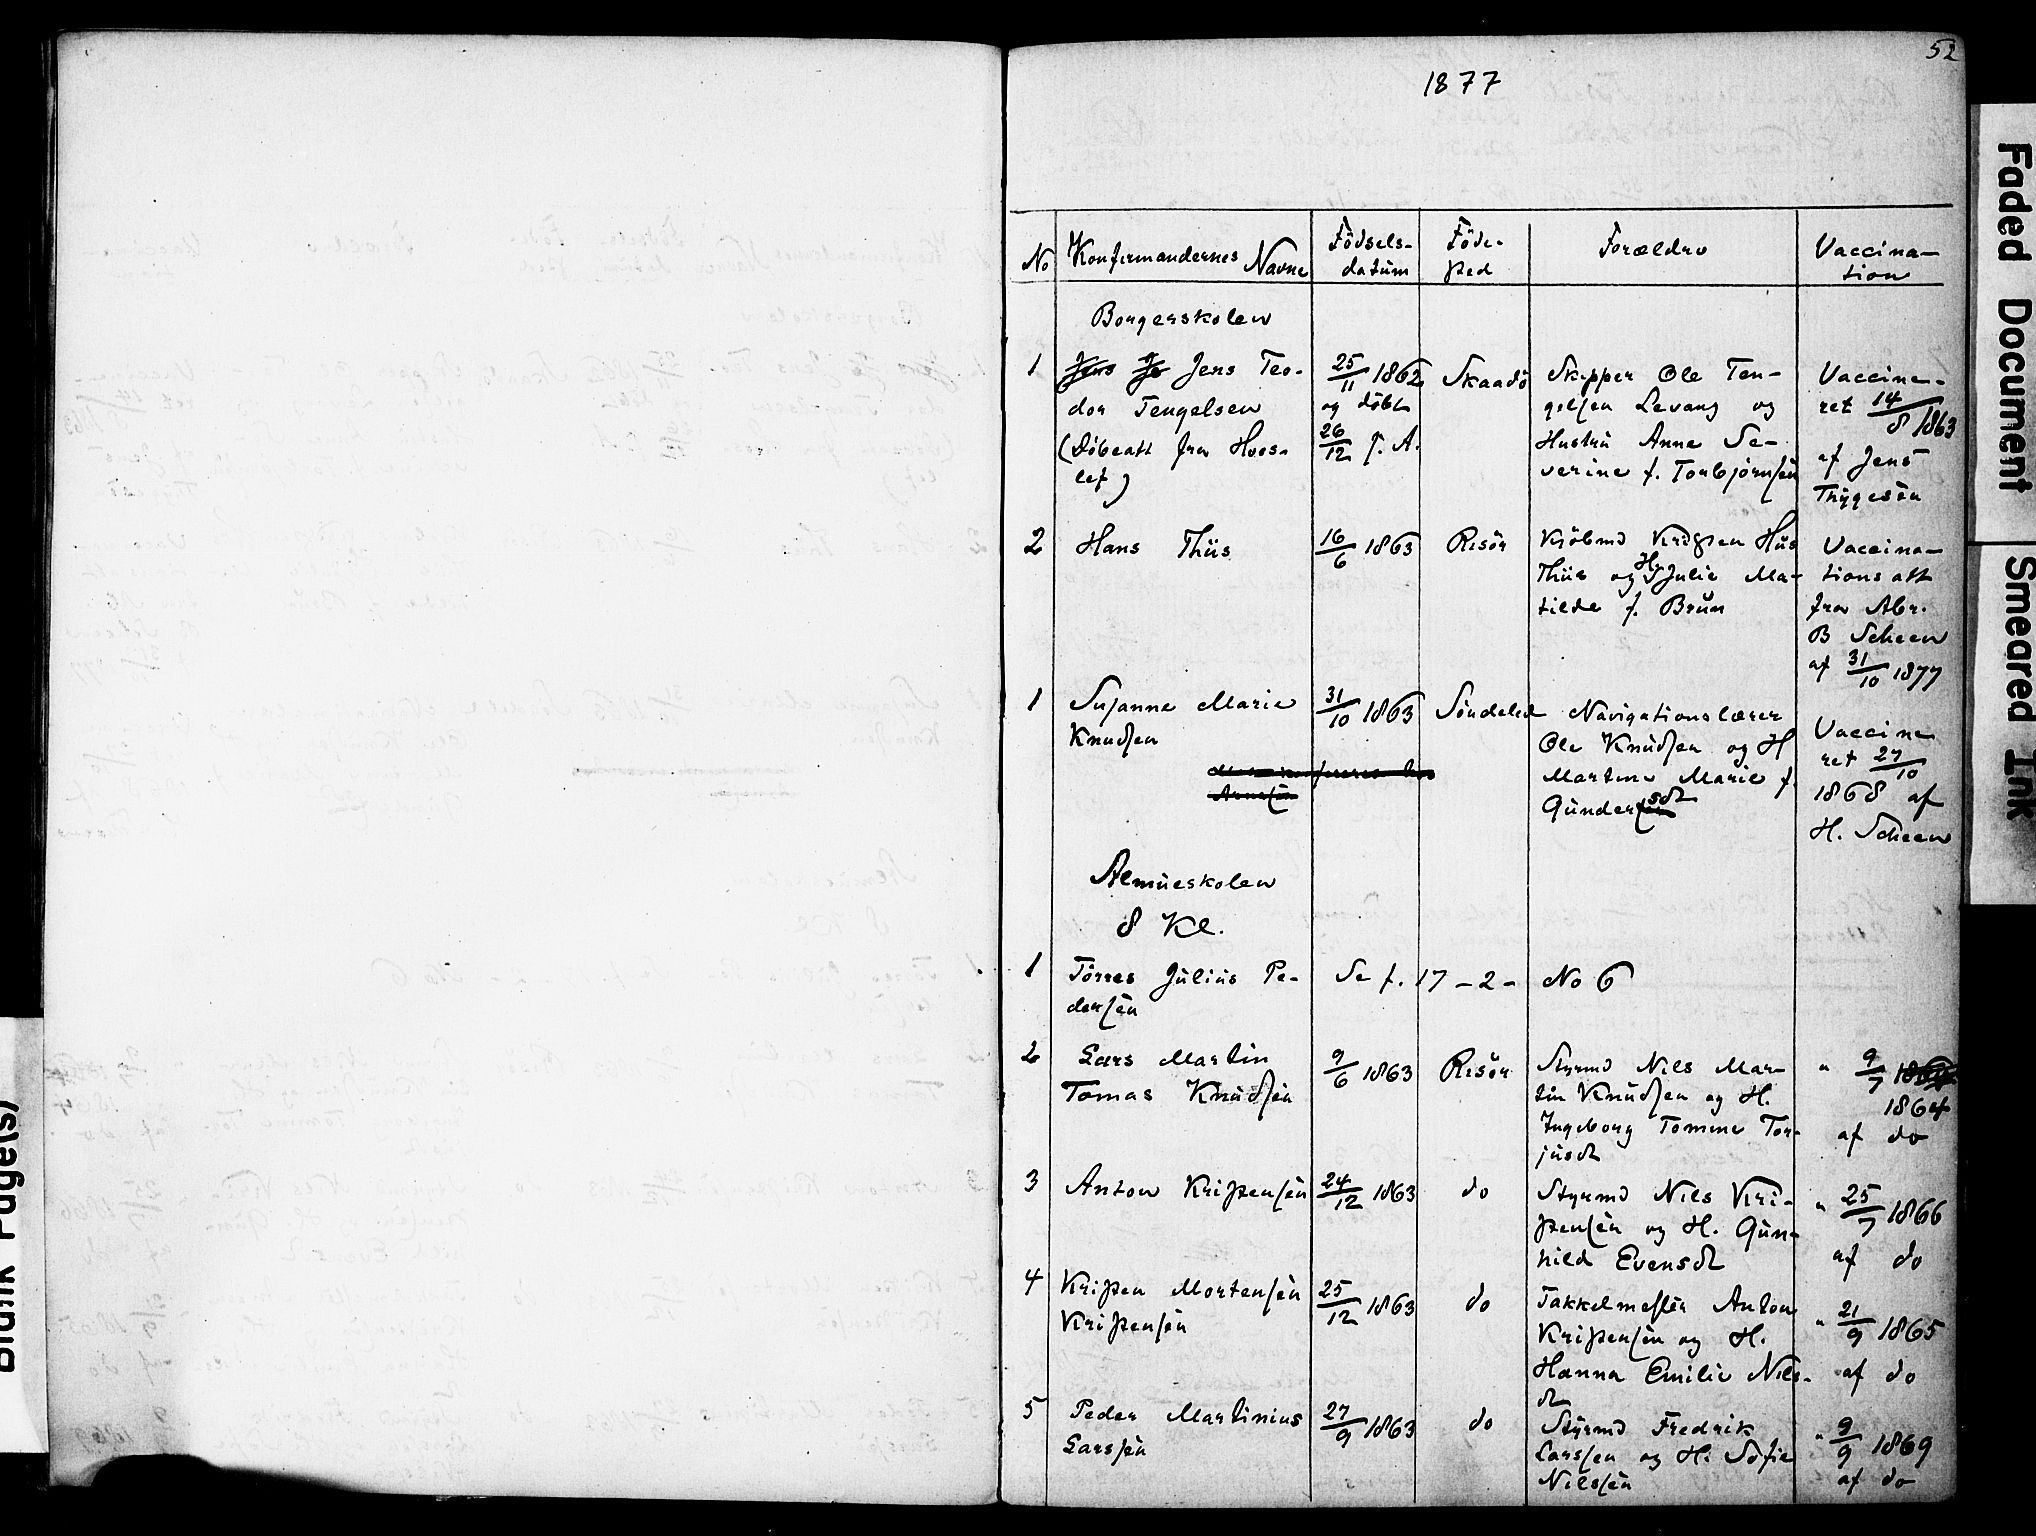 52
1877
No Konfirmandernes Navne Födsels-datum Föde-sted Forældre Vaccina-tion
Borgerskolen
1 Jens Teo-
dor Tengelsen
(Döbeatt fra Hvos-
lef)
25/11 1862
og döbt
26/12 f. A.
Skaadö
Skipper Ole Ten-
gelsen Levang og
Hustrü Anne Se-
verine f. Torbjörnsen
Vaccine-
ret 14/8 1863
af Jens
Thygesen
2 Hans Thiis
16/6 1863
Risör
Kjöbmd
Thiis og H. Julie Ma-
tilde f. Brün
Vaccina-
tionsatt
fra Abr.
B Scheen
af 31/10 1877
1 Susanne Marie
Knudsen
31/10 1863
Söndeled
Navigationslærer
Ole Knüdsen og H
Martine Marie f.
Gündersdt
Vaccine
ret 27/10
1868 af
H. Scheen
Almüeskolen
8 Kl.
1 Törres Jülius Pe-
dersen
Se f. 17 - 2 - No 6
2 Lars Martin
Tomas Knüdsen
9/6 1863
Risör
Styrmd Nils Mar-
tin Knüdsen og H.
Ingeborg Tomine Tor-
jüsdt
" 9/7
1864
af do
3 Anton Kristensen
24/12 1863
do
Styrmd Nils Kri-
stensen og H. Gün-
hild Evensdt
" 25/7 1866
af do
4 Kristen Mortensen
Kristensen
25/12 1863
do
Takkelmester Anton
Kristensen og H.
Hanna Emilie Nils-
dt
" 21/9 1865
af do
5 Peder Martinius
Larssen
27/9 1863
do
Styrmd Fredrik
Larssen og H. Sofie
Nilssen
" 9/9 1869
af do
Faded Document
Smeared Ink
Blank Page(s)